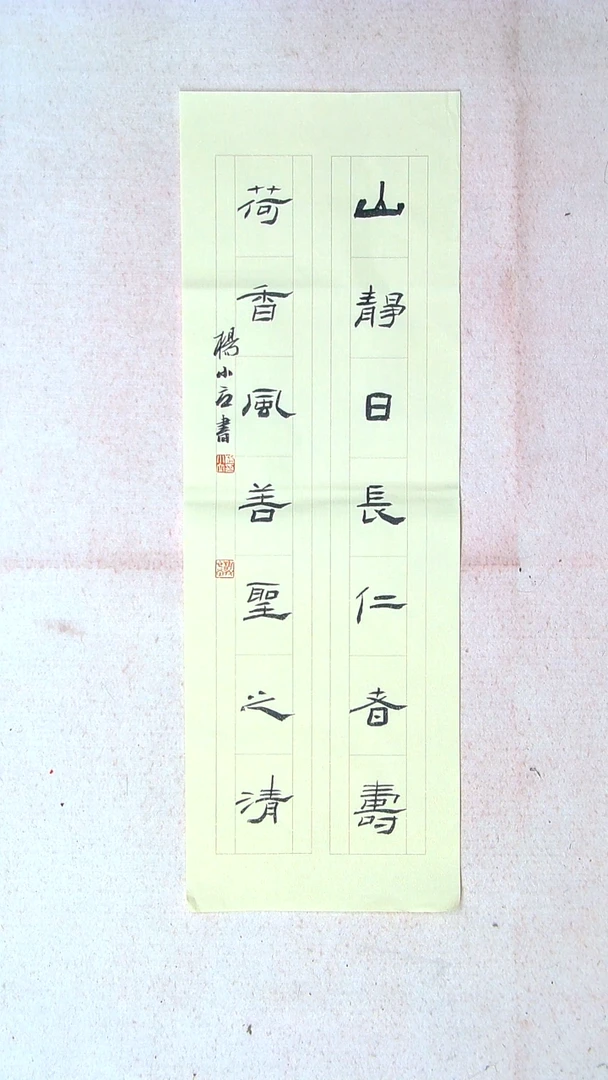 山靜日長仁者壽
荷香風善聖之清
楊小石書